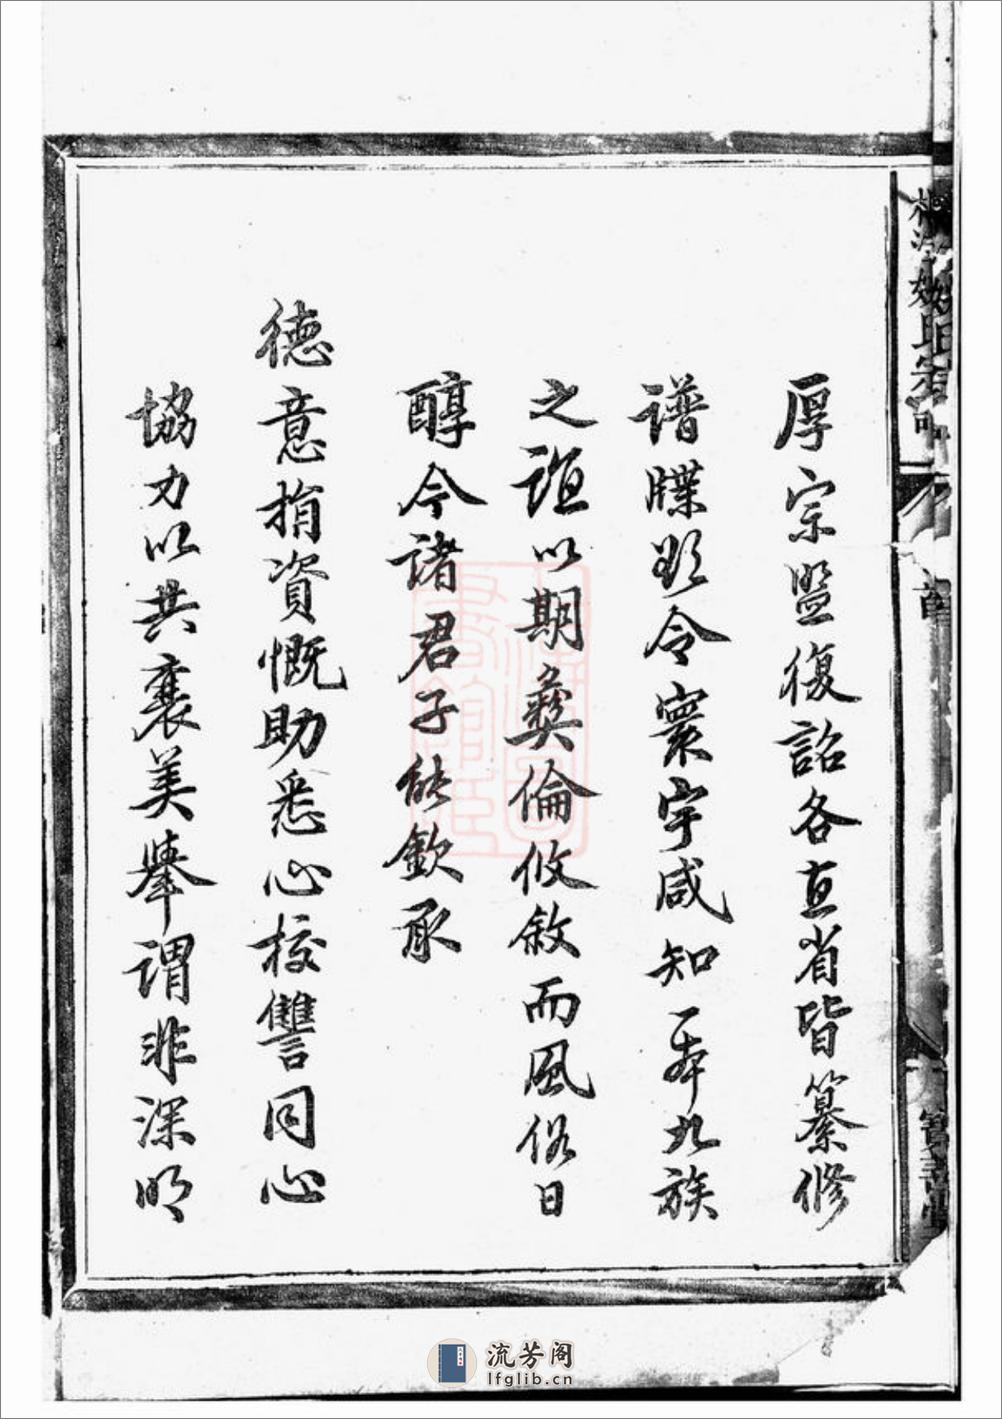 厚宗盟復詔各直省皆纂修
譜牒欲令寰宇咸知一本九族
之誼以期彝倫攸敘而風俗日
醇今諸君子能欽承
德意捐資慨助悉心校讐同心
協力以共襄美舉謂非深明
宗譜
首
寶善堂
流芳阁
lfglib.cn